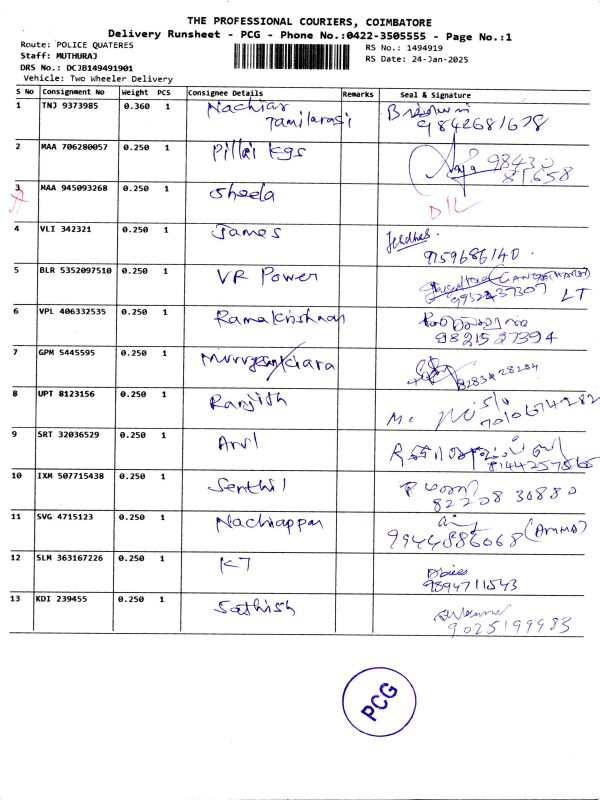 THE PROFESSIONAL COURIERS, COIMBATORE
Delivery Runsheet - PCG - Phone No.:0422-3505555 - Page No.:1
Route: POLICE QUATERES
RS No.: 1494919
Staff: MUTHURAJ
RS Date: 24-Jan-2025
DRS No.: DCJB149491901
Vehicle: Two Wheeler Delivery
S No Consignment No Weight PCS Consignee Details Remarks Seal & Signature
1 TNJ 9373985 0.360 1 Nachiar
Tamilarasi 9842681678
2 MAA 706280057 0.250 1 Pillai kgs 98430
81658
3 MAA 945093268 0.250 1 Sheela
D/L
4 VLI 342321 0.250 1 James
9159686140
5 BLR 5352097510 0.250 1 VR Power
9952437307 LT
6 VPL 406332535 0.250 1 Ramakrishnan
9821527394
7 GPM 5445595 0.250 1
8 UPT 8123156 0.250 1 Ranjith
7010674282
9 SRT 32036529 0.250 1 Arul
8144257565
10 IXM 507715438 0.250 1 Senthil
82208 30880
11 SVG 4715123 0.250 1 Nachiappan
9944886068 (Amma)
12 SLM 363167226 0.250 1 KT
9894711543
13 KDI 239455 0.250 1 Sathish
9025199983
PCG